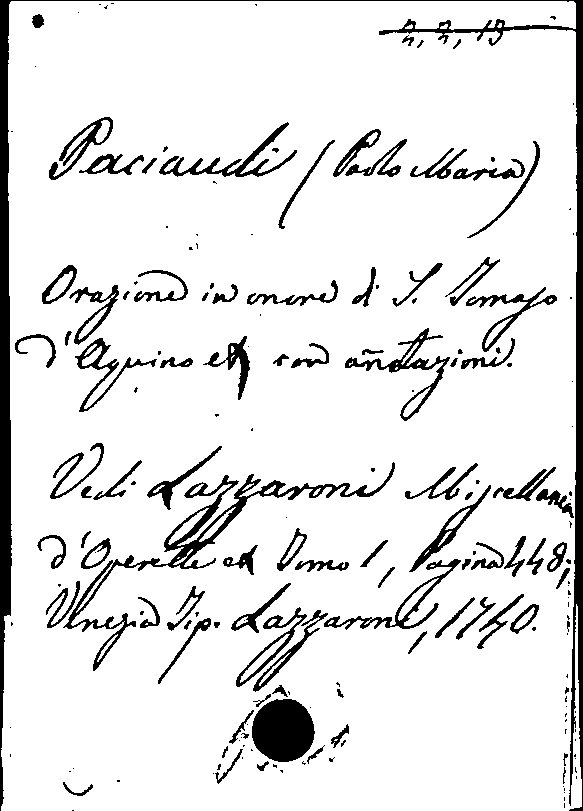 2, 2, 13
Paciaudi (Paolo Maria)
Orazione in onore di S. Tomaso
d'Aquino etc con annotazioni.
Vedi Lazzaroni Miscellanea
d'Operette etc Tomo 1, Pagina 448;
Venezia Tip. Lazzaroni, 1740.